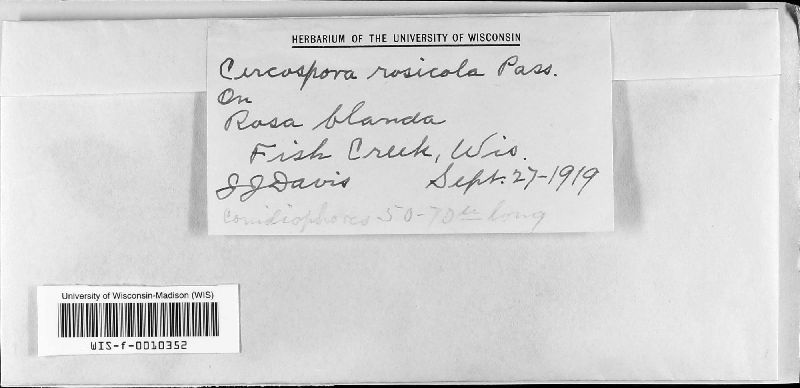 HERBARIUM OF THE UNIVERSITY OF WISCONSIN
Cercospora rosicola Pass.
On
Rosa blanda
Fish Creek, Wis.
J J Davis Sept. 27-1919
Conidiophores 50-70 long
University of Wisconsin-Madison (WIS)
WIS-f-0010352